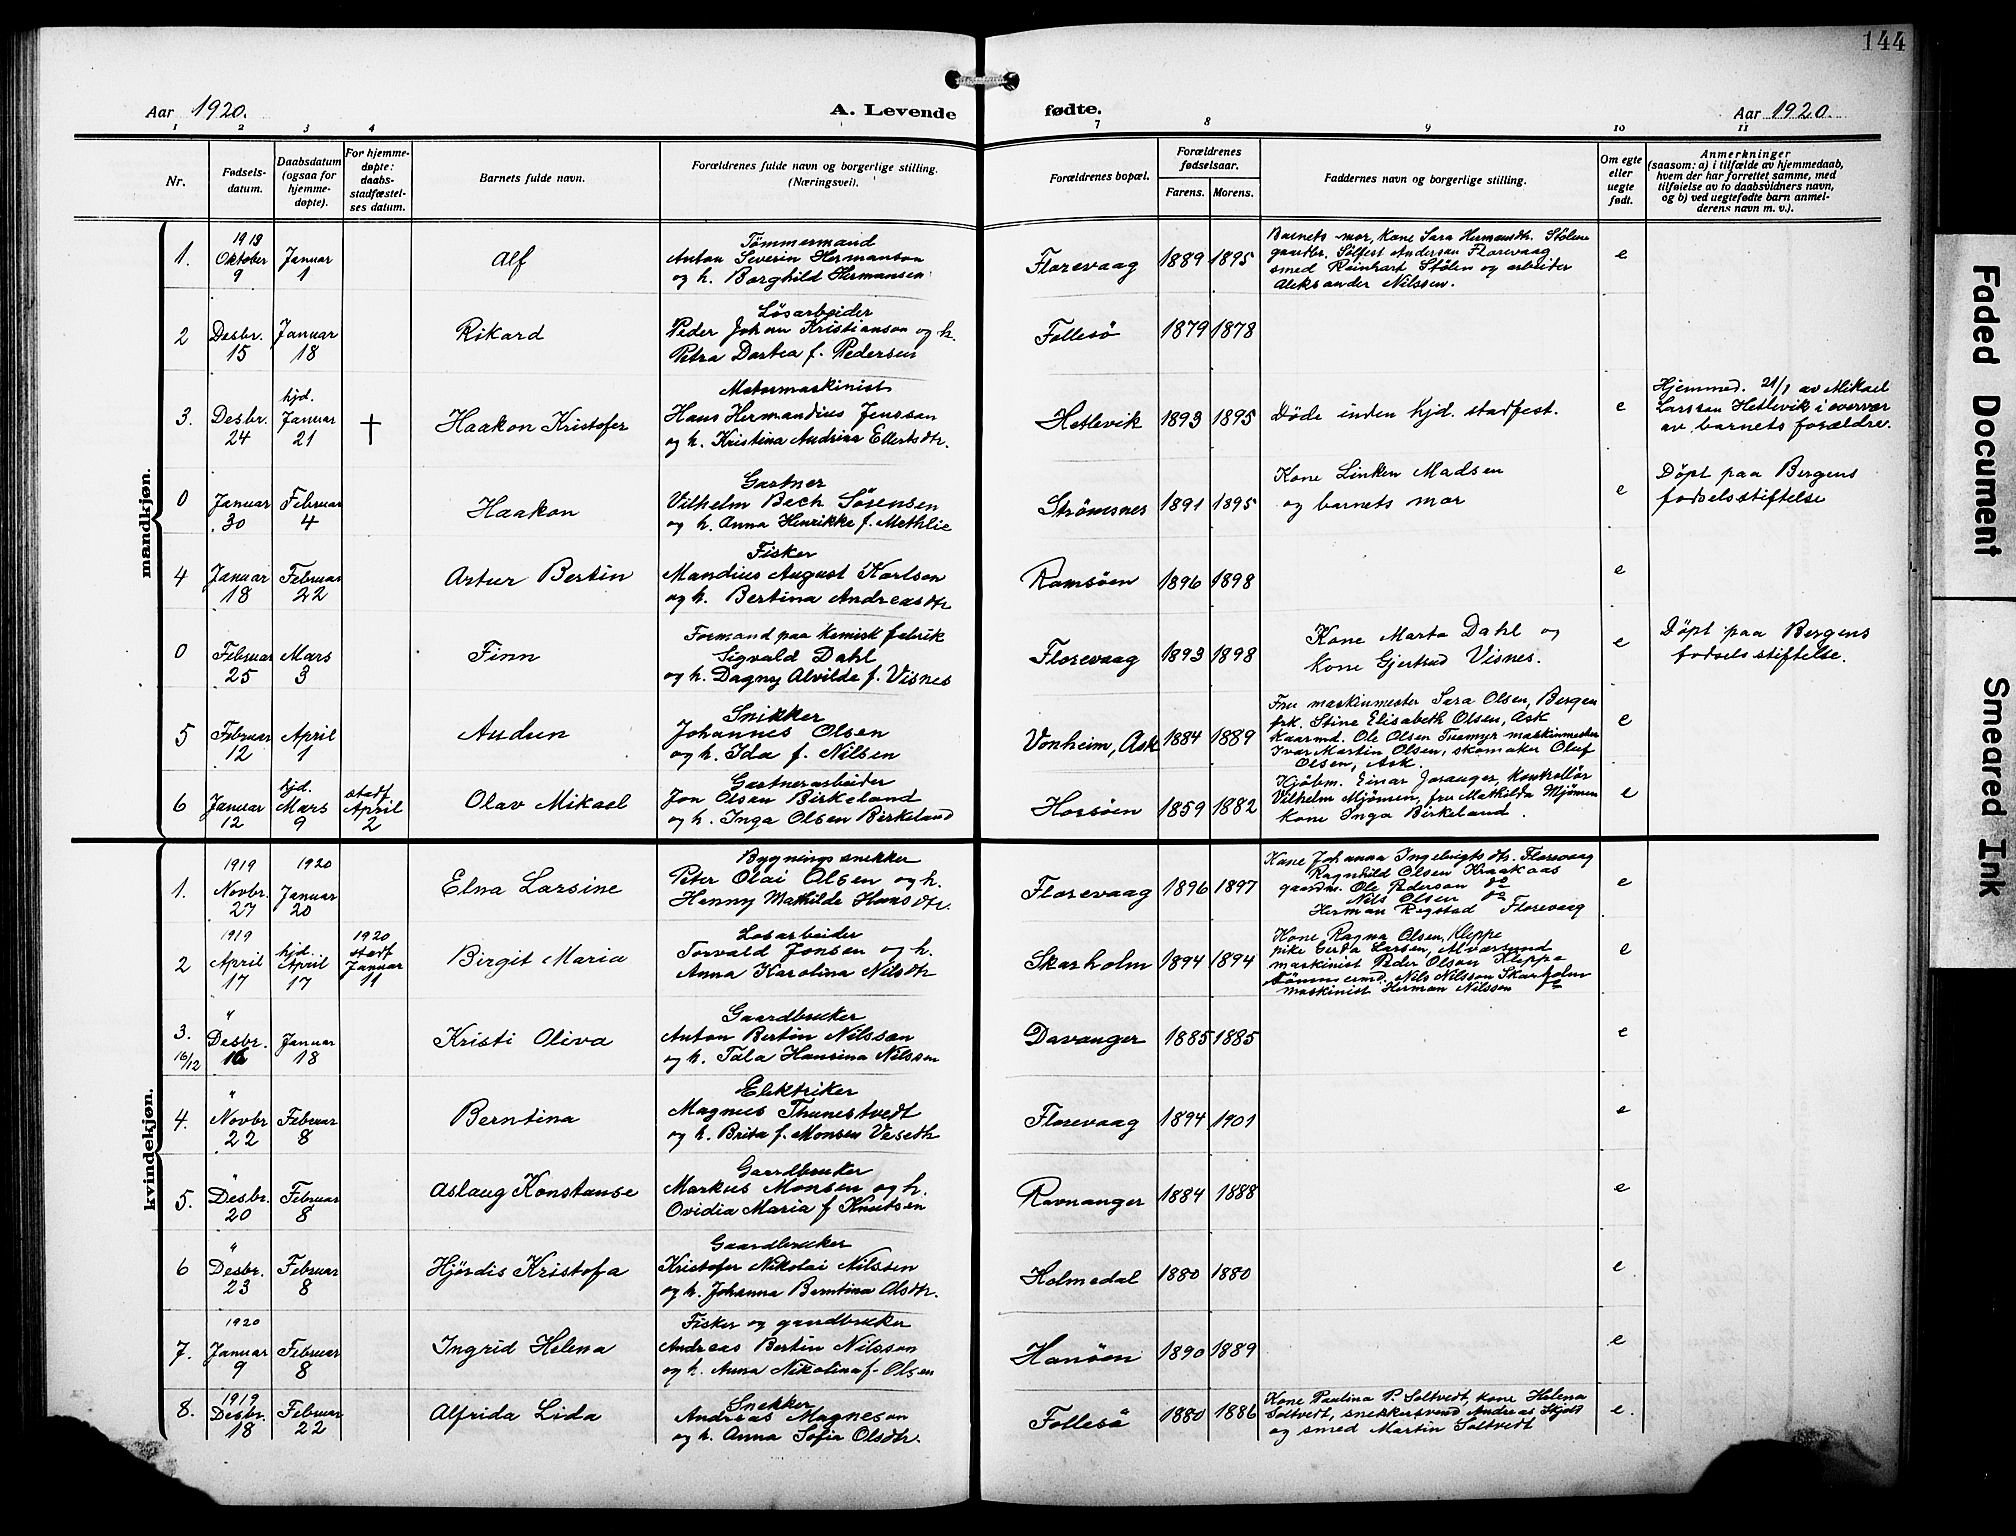 144
Aar 1920.
A. Levende
fødte.
Aar 1920.
1 2 3 4 7 8 9 10 11
Nr.
Fødsels-
datum.
Daabsdatum
(ogsaa for
hjemme-
døpte).
For hjemme-
døpte:
daabs-
stadfæstel-
ses datum.
Barnets fulde navn.
Forældrenes fulde navn og borgerlige stilling.
(Næringsvei).
Forældrenes bopæl.
Forældrenes
fødselsaar.
Farens. Morens.
Faddernes navn og borgerlige stilling.
Om egte
eller
uegte
født.
Anmerkninger
(saasom: a) i tilfælde av hjemmedaab,
hvem der har forrettet samme, med
tilføielse av to daabsvidners navn,
og b) ved uegtefødte barn anmel-
derens navn m. v.).
mandkjøn.
1.
1919
Oktober
9
Januar
1
Alf
Tømmermand
Anton Severin Hermansen
og h. Borghild Hermansen
Florevaag
1889 1895
Barnets mor, kone Sara Hermansdtr. Stølen
gaardbr. Sølfest Andersen Florevaag
smed Reinhart Stølen og arbeider
Aleksander Nilssen.
e
2
Desbr.
15
Januar
18
Rikard
Løsarbeider
Peder Johan Kristiansen og h.
Petra Dortea f. Pedersen
Follesø
1879 1878
3.
Desbr.
24
hjd.
Januar
21
†
Haakon Kristofer
Motormaskinist
Hans Hermandius Jenssen
og h. Kristina Andrina Ellertsdtr.
Hetlevik
1893 1895
Døde inden hjd. stadfest.
e
Hjemmed. 21/1 av Mikael
Larssen Hetlevik i overvær
av barnets forældre.
0
Januar
30
Februar
4
Haakon
Gartner
Vilhelm Bech Sørensen
og h. Anna Henrikke f. Methlie
Strømsnes
1891 1895
Kone Linken Madsen
og barnets mor
e
Døpt paa Bergens
fødselsstiftelse
4
Januar
18
Februar
22
Artur Bertin
Fisker
Mandius August Karlsen
og h. Bertina Andreasdtr
Ramsøen
1896 1898
e
0
Februar
25
Mars
3
Finn
Formand paa kemisk fabrik
Sigvald Dahl
og h. Dagny Alvilda f. Visnes
Florevaag
1893 1898
Kone Marta Dahl og
kone Gjertrud Visnes.
e
Døpt paa Bergens
fødselsstiftelse.
5
Februar
12
April
1
Audun
Snikker
Johannes Olsen
og h. Ida f. Nilsen
Vonheim, Ask
1884 1889
Fru maskinmester Sara Olsen, Bergen
frk. Stine Elisabeth Olsen, Ask
Ole Olsen maskinmester
Ivar Martin Olsen, skomaker Oluf
Olsen, Ask.
e
6
Januar
12
hjd.
Mars
9
stadf
April
2
Olav Mikael
Gartnerarbeider
Jon Olsen Birkeland
og h. Inga Olsen Birkeland
Horsøen
1859 1882
Kjøbm. Einar Joranger, Kontrollør
Vilhelm Mjønsen, fru Mathilda Mjønsen
kone Inga Birkeland.
e
kvindekjøn.
1.
1919
Novbr.
27
1920
Januar
20
Elna Larsine
Bygningssnekker
Peter Olai Olsen og h.
Henny Mathilde Hansdtr.
Florevaag
1896 1897
Kone Johanna Ingebrigtsdtr. Florevaag
Ragnhild Olsen Kraakaas
gaardm. Ole Pederson do
Nils Olsen do
Herman Regstad Florevaag
e
2
1919
April
17
hjd.
April
17
1920
stadf
Januar
11
Birgit Maria
Løsarbeider
Torvald Jonsen og h.
Anna Karolina Nilsdtr
Skarholm
1894 1894
Kone Ragna Olsen, Kleppe
pike Gerda Larsen, Alværsund
maskinist Peder Olsen Kleppe
Tømmermd. Nils Nilssen Skarholm
maskinist Herman Nilssen do
e
3.
16/12
"
Desbr.
16
Januar
18
Kristi Oliva
Gaardbruker
Anton Bertin Nilssen
og h. Tala Hansina Nilssen
Davanger
1885 1885
e
4.
"
Novbr
22
Februar
8
Berntina
Elektriker
Magnus Thunestvedt
og h. Brita f. Monsen
Florevaag
1894 1901
e
5.
"
Desbr.
20
Februar
8
Aslaug Konstanse
Gaardbruker
Markus Monsen og h.
Ovidia Maria f Knutsen
Ravnanger
1884 1888
e
6
"
Desbr.
23
Februar
8
Hjørdis Kristofa
Gaardbruker
Kristofer Nikolai Nilssen
og h. Johanna Berntina Olsdtr.
Holmedal
1880 1880
e.
7.
1920
Januar
9
Februar
8
Ingrid Helena
Fisker og gaardbruker
Andreas Bertin Nilsson
og h. Anna Nikolina f. Olsen
Hanøen
1890 1889
e
8.
1919
Desbr.
18
Februar
22
Alfrida Lida
Snekker
Andreas Magnesen
og h. Anna Sofia Olsdtr.
Follesø
1880 1886
Kone Paulina P. Soltvedt, kone Helena
Soltvedt, snekkersvend Andreas Skjold
og smed Martin Soltvedt
e.
Faded Document
Smeared Ink